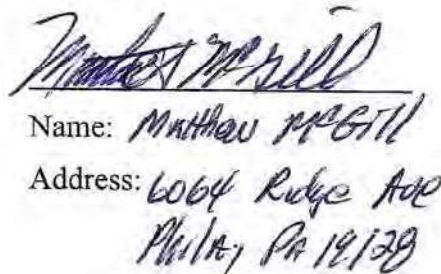 Matthew McGill
Name: Matthew McGill
Address: 6064 Ridge Ave
Phila, Pa 19128